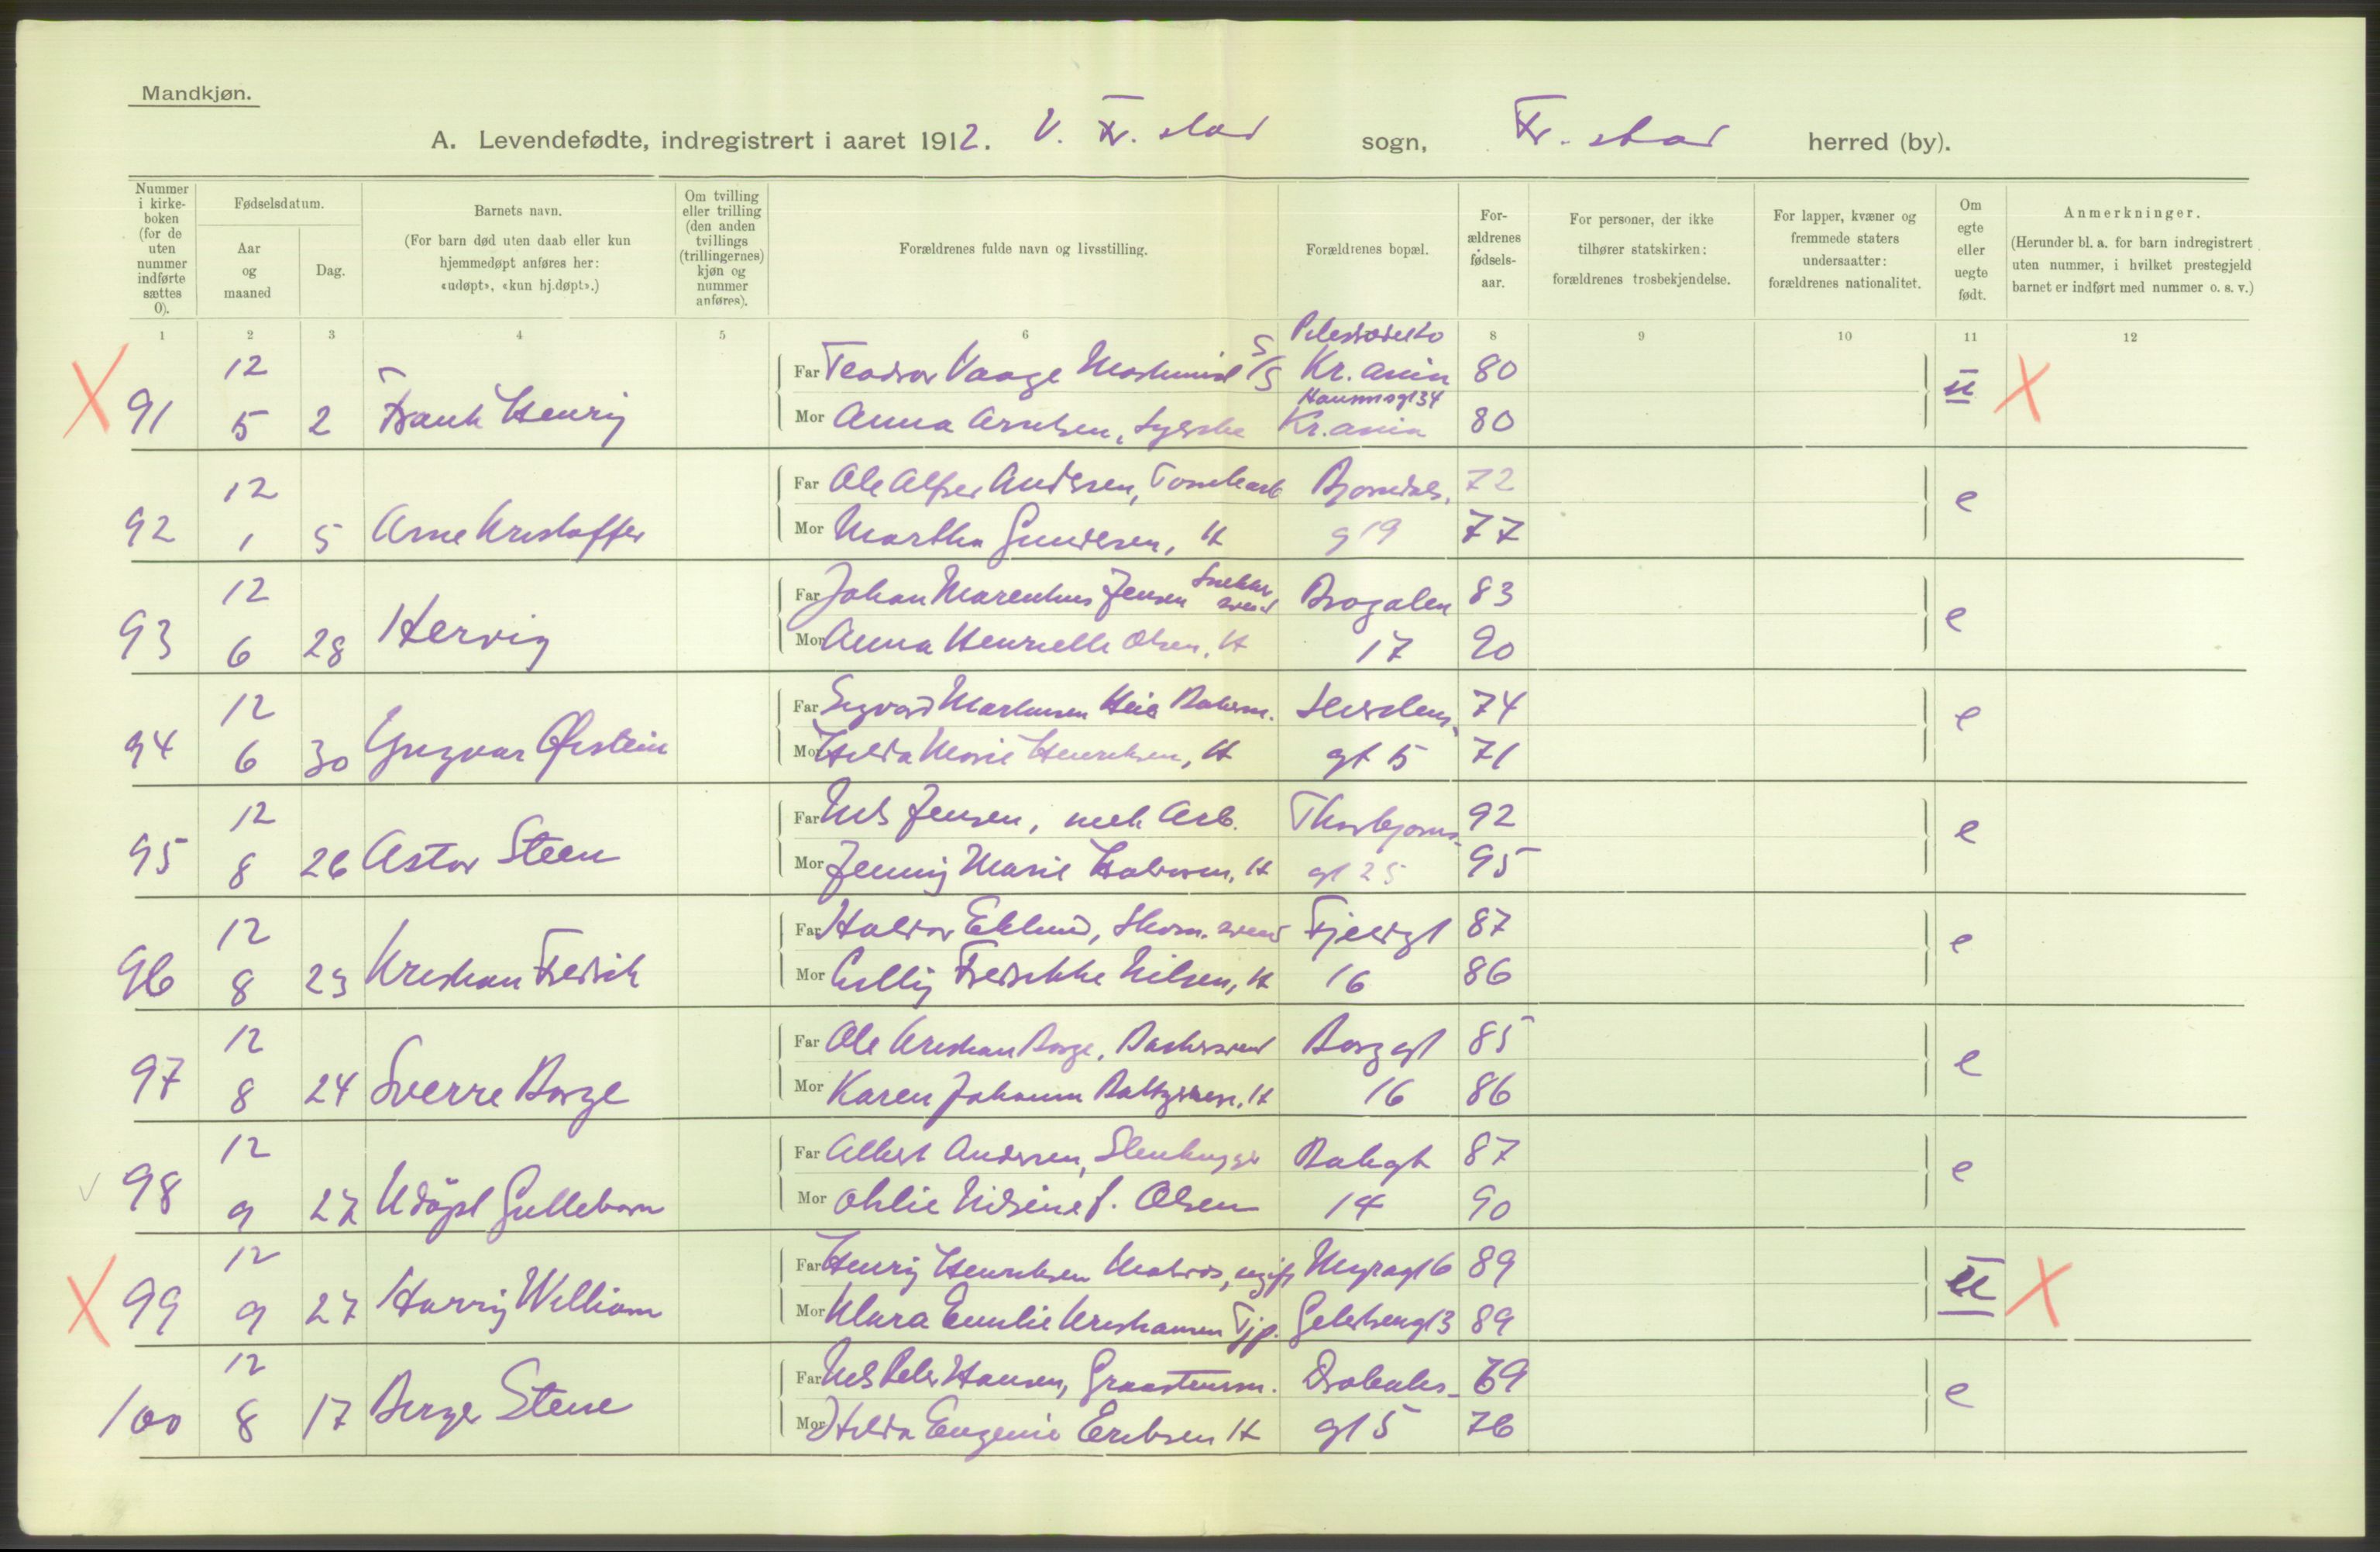 Mandkjøn.
A. Levendefødte, indregistrert i aaret 1912. V. Fr. stad sogn, Fr. stad herred (by).
Nummer i kirke-boken (for de uten nummer indførte sættes 0).
Fødselsdatum.
Aar og maaned
Dag.
Barnets navn.
(For barn død uten daab eller kun hjemmedøpt anføres her: «udøpt», «kun hj.døpt».)
Om tvilling eller trilling (den anden tvillings (trillingernes) kjøn og nummer anføres).
Forældrenes fulde navn og livsstilling.
Forældrenes bopæl.
For-ældrenes fødsels-aar.
For personer, der ikke tilhører statskirken: forældrenes trosbekjendelse.
For lapper, kvæner og fremmede staters undersaatter: forældrenes nationalitet.
Om egte eller uegte født.
Anmerkninger.
(Herunder bl. a. for barn indregistrert uten nummer, i hvilket prestegjeld barnet er indført med nummer o. s. v.)
1 2 3 4 5 6 8 9 10 11 12
X 91 12 5 2 Frank Henry
Far Teodor Vaage Maskinist S/S Kr.ania 80
Mor Anna Arntsen, Kr.ania 80
u X
92 12 1 5 Arne Kristoffer
Far Ole Alfred Andersen, Tomtearb Bjørndals. 72
Mor Martha Gundersen, H g 19 77
e
93 12 6 28 Hervig
Far Johan Marenius Jensen Snekkersvend Brogaten 83
Mor Anna Henriette Olsen, H 17 90
e
94 12 6 30 Yngvar Øistein
Far Sigvard Markusen Heie 74
Mor Hilda Marie Henriksen, H gt 5 71
e
95 12 8 26 Astor Steen
Far Nils Jensen, mek Arb. Thorbjørns- 92
Mor Jenny Marie Halvorsen, H gt 25 95
e
96 12 8 23 Kristian Fredrik
Far Halvor Eklund, Skom. svend Fjeldgt 87
Mor Fredrikke Nilsen, H 16 86
e
97 12 8 24 Sverre Borge
Far Ole Kristian Borge, Bakersvend Borg gt 85
Mor Karen Johanne Baltzersen, H 16 86
e
98 12 9 27 Udöpt Guttebarn
Far Albert Andersen, Stenhugger Bakegt 87
Mor Nilsine f. Olsen 14 90
e
X 99 12 9 27 Harry William
Far Henry Henriksen Matros, ugift Myragt 6 89
Mor Klara Emilie Kristiansen Tjp. 89
u X
100 12 8 17 Birger Stene
Far Nils Peter Hansen, Graastensm. 69
Mor Hilda Eugenie Eriksen H gt 5 76
e